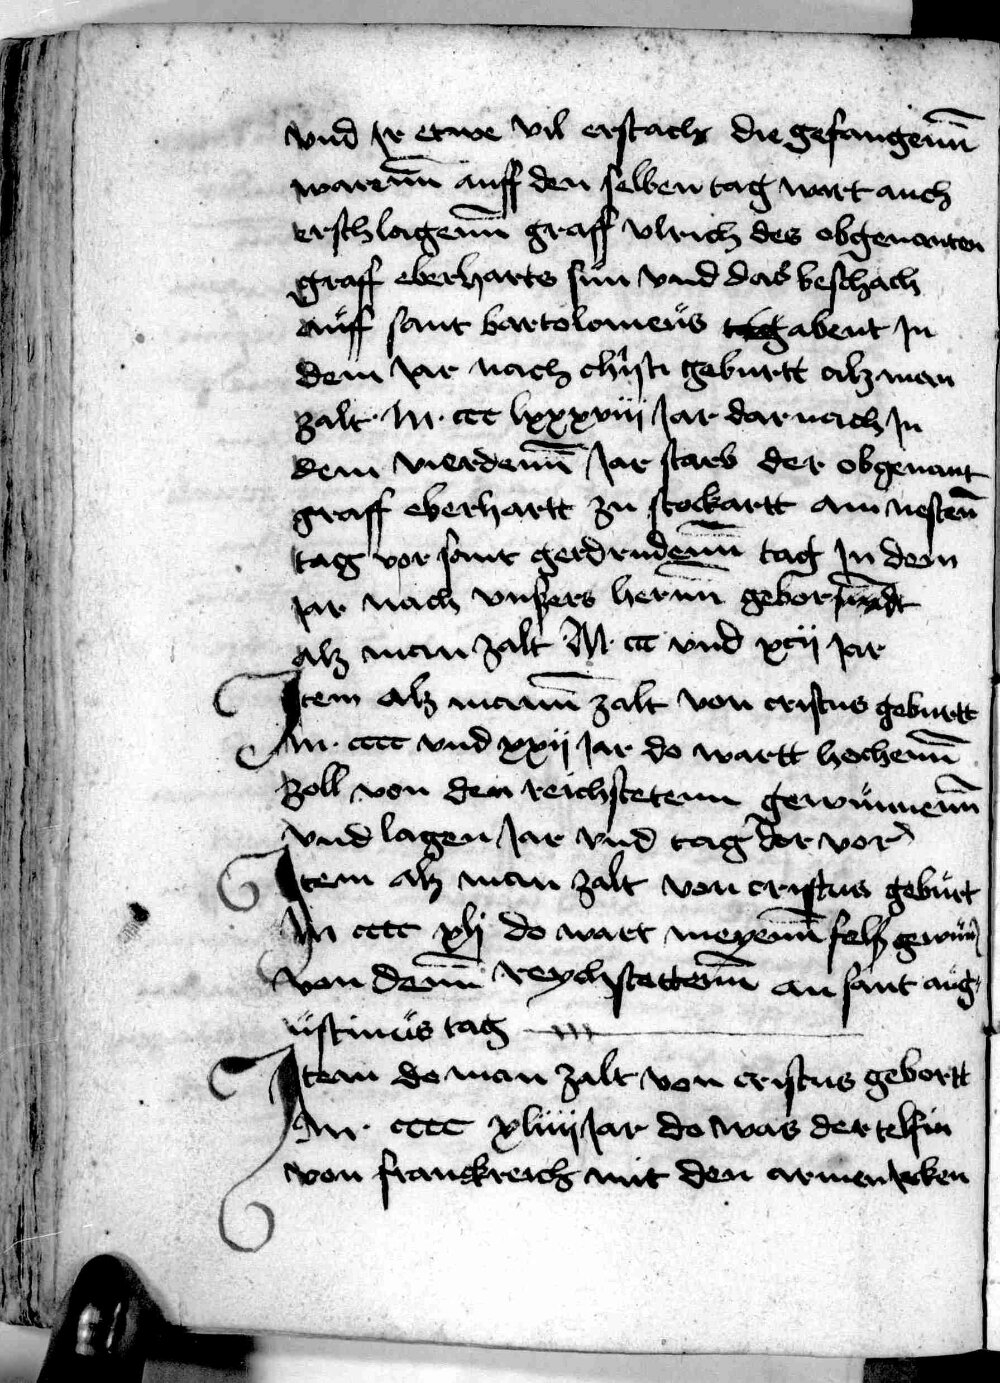 vnd ir etwe vil erstach die gefangenn̄
warenn̄ auff den selben tag wart auch
erschlagenn̄ graff vlrich des obgenanten
graff eberharts sün vnd das beschach
aüff sant bartolomeüs tag abent in
dem jar nach christi geburtt alz man
zalt M ccc lxxxviij jar dar nach jn
dem vierdenn̄ jar starb der obgenant
graff eberhartt zu stockartt am nestenn̄
tag vor sant gerdrudenn̄ tag jn dem
jar nach vnsers hernn̄
alz man zalt M ccc vnd xcij jar
Item alz mann̄ zalt von cristus geburtt
M cccc vnd xxij jar do wartt hochenn̄
zoll von den reichstetenn gewünnenn̄
vnd lagen jar vnd tag dor vor
Item alz man zalt von cristus gebürt
M cccc xlj do wart meyenn̄ felz gewün̄
von denn̄ reychstettenn̄ an sant aüg
üstineüs tag
Item do man zalt von cristus gebortt
M cccc xliiij jar do was der telfin
von franckreich mit den armen jecken